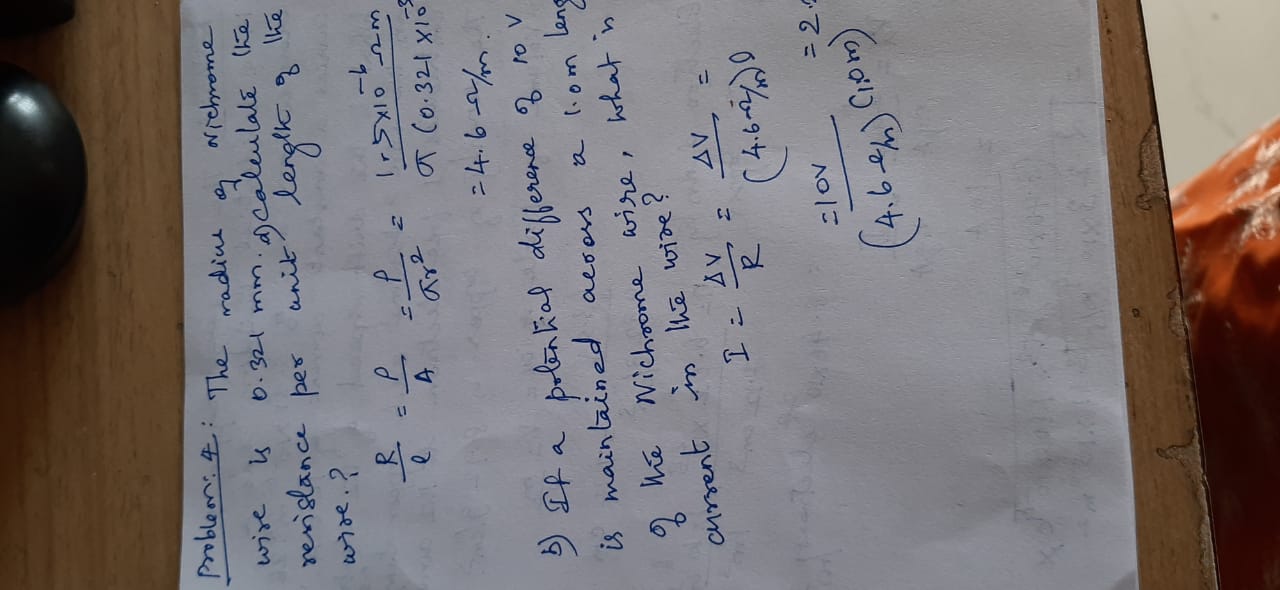 Problem: 4: The radius of Nichrome
wire is 0.321 mm. a) Calculate the
resistance per unit length of the
wire.?
R/l = ρ/A = ρ/πr² = 1.5x10⁻⁶ Ωm / π(0.321x10⁻³
= 4.6 Ω/m.
b) If a potential difference of 10 V
is maintained across a 1.0m leng
of the Nichrome wire, what is
current in the wire?
I = ΔV/R = ΔV/(4.6 Ω/m)l =
= 10V/(4.6 Ω/m)(1.0m) = 2.